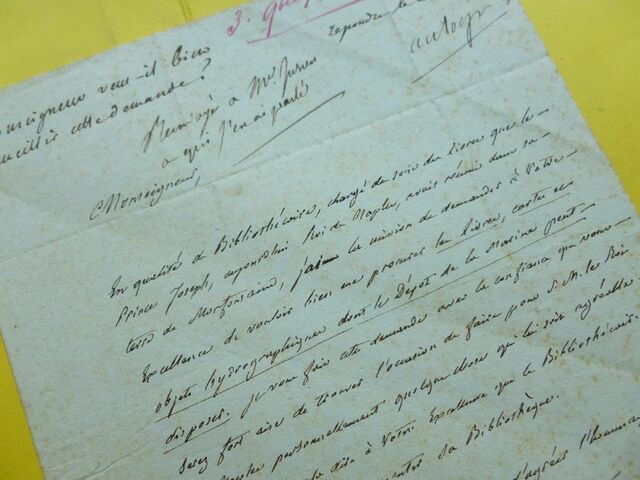 3.
repondre le
autogr
onseigneur veut-il bien
cueillir cette demande?
Renvoyé à Mr
a qui j'en ai parlé
Monseigneur,
En qualité de Bibliothécaire, chargé du soin des livres que le
Prince Joseph, aujourdhui Roi de Naples, avait réunis dans sa
terre de Morfontaine, j'ai la mission de demander à Votre
Excellence de vouloir bien me procurer les livres, cartes et
objets hydrographiques dont le Dépôt de la Marine peut
disposer. Je vous fais cette demande avec la confiance que vous
serez fort aise de trouver l'occasion de faire pour S. M. le Roi
personnellement quelque chose qui lui soit agréable
à Votre Excellence que le Bibliothécaire
sa Bibliothèque.
d'agréer l'hommage